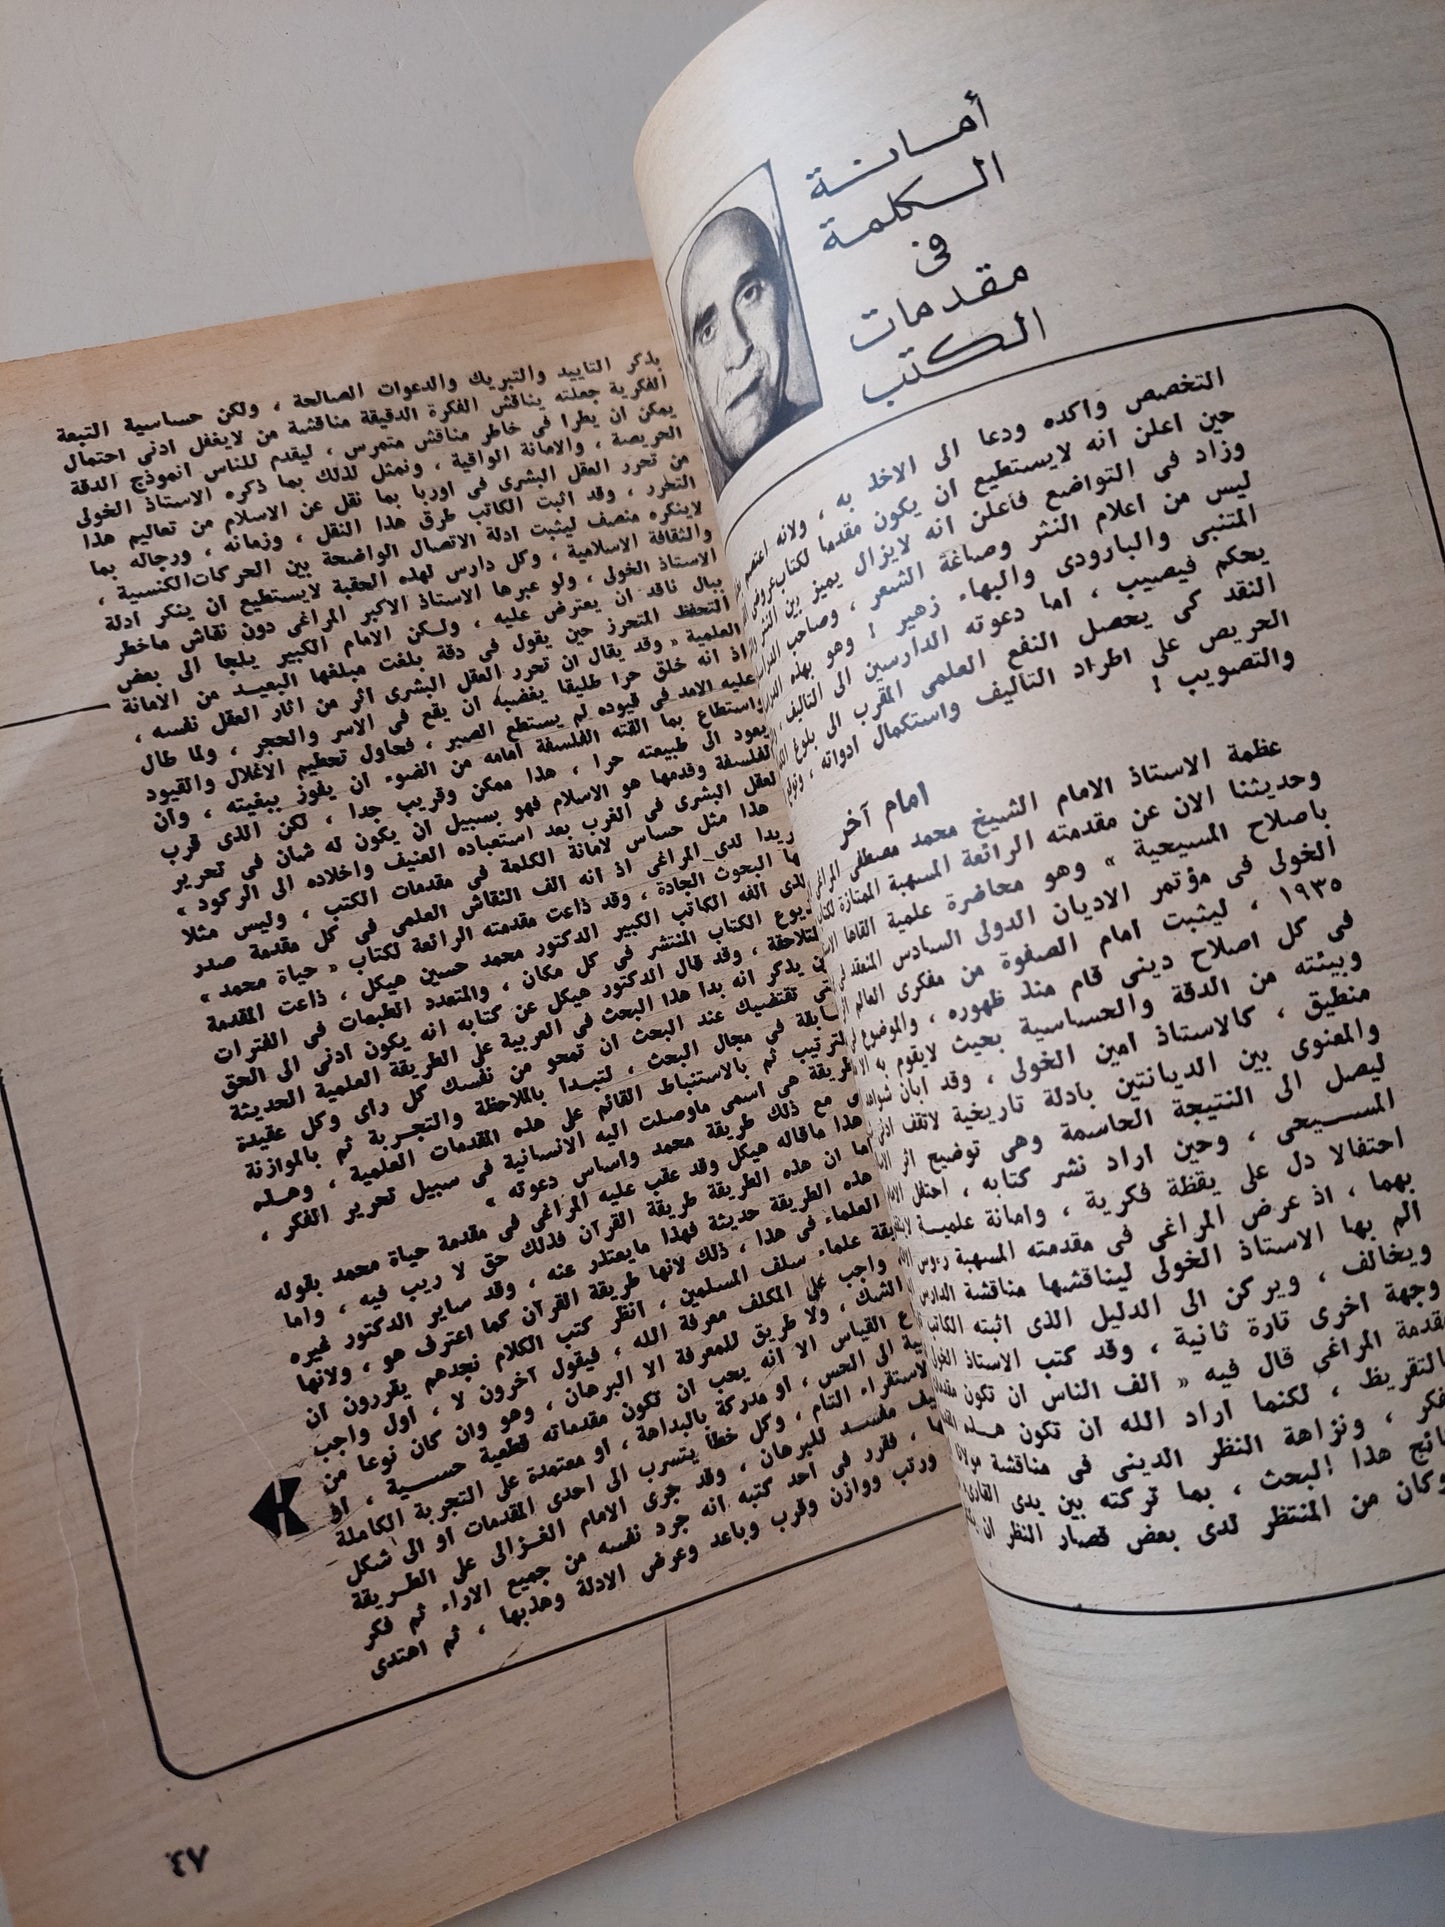 أمانة
الكلمة
فى
مقدمات
الكتب
التخصص واكده ودعا الى الاخذ به ، ولانه اعتصم
حين اعلن انه لايستطيع ان يكون مقدما لكتاب عروض
وزاد فى التواضع فأعلن انه لايزال يميز بين النثر
ليس من اعلام النثر وصاغة الشعر ، وصاحب
المتنبى والبارودى والبهاء زهير ! وهو بهذه
يحكم فيصيب ، اما دعوته الدارسين الى التأليف
النقد كى يحصل النفع العلمى المقرب الى بلوغ
الحريص على اطراد التاليف واستكمال ادواته ،
والتصويب !
امام آخر
عظمة الاستاذ الامام الشيخ محمد مصطفى المراغى
وحديثنا الان عن مقدمته الرائعة المسهبة الممتازة لكتاب
باصلاح المسيحية » وهو محاضرة علمية القاها
الخولى فى مؤتمر الاديان الدولى السادس المنعقد
١٩٣٥ ، ليثبت امام الصفوة من مفكرى العالم
فى كل اصلاح دينى قام منذ ظهوره ، والموضوع
وبيئته من الدقة والحساسية بحيث لايقوم به
منطيق ، كالاستاذ امين الخولى ، وقد ابان
والمعنوى بين الديانتين بادلة تاريخية لاتقف
ليصل الى النتيجة الحاسمة وهى توضيح اثر
المسيحى ، وحين اراد نشر كتابه ، احتفل
احتفالا دل على يقظة فكرية ، وامانة علمية
بهما ، اذ عرض المراغى فى مقدمته المسهبة رءوس
الم بها الاستاذ الخولى ليناقشها مناقشة الدارس
ويخالف ، ويركن الى الدليل الذى اثبته الكاتب
وجهة اخرى تارة ثانية ، وقد كتب الاستاذ
مقدمة المراغى قال فيه « الف الناس ان تكون
التقريظ ، لكنما اراد الله ان تكون هذه
فكر ، ونزاهة النظر الدينى فى مناقشة
هذا البحث ، بما تركته بين يدى القارىء
وكان من المنتظر لدى بعض قصار النظر ان
بذكر التاييد والتبريك والدعوات الصالحة ، ولكن حساسية التبعة
الفكرية جعلته يناقش الفكرة الدقيقة مناقشة من لايغفل ادنى احتمال
يمكن ان يطرا فى خاطر مناقش متمرس ، ليقدم للناس انموذج الدقة
الحريصة ، والامانة الواقية ، ونمثل لذلك بما ذكره الاستاذ الخولى
من تحرر العقل البشرى فى اوربا بما نقل عن الاسلام من تعاليم هذا
التحرر ، وقد اثبت الكاتب طرق هذا النقل ، وزمانه ، ورجاله بما
لاينكره منصف ليثبت ادلة الاتصال الواضحة بين الحركات الكنسية ،
والثقافة الاسلامية ، وكل دارس لهذه الحقبة لايستطيع ان ينكر ادلة
الاستاذ الخولى ، ولو عبرها الاستاذ الاكبر المراغى دون نقاش ماخطر
ببال ناقد ان يعترض عليه ، ولكن الامام الكبير يلجا الى بعض
التحفظ المتحرز حين يقول فى دقة بلغت مبلغها البعيد من الامانة
العلمية « وقد يقال ان تحرر العقل البشرى اثر من اثار العقل نفسه ،
اذ انه خلق حرا طليقا يغضبه ان يقع فى الاسر والحجر ، ولما طال
عليه الامد فى قيوده لم يستطع الصبر ، فحاول تحطيم الاغلال والقيود
واستطاع بما القته الفلسفة امامه من الضوء ان يفوز ببغيته ، وأن
يعود الى طبيعته حرا ، هذا ممكن وقريب جدا ، لكن الذى قرب
الفلسفة وقدمها هو الاسلام فهو بسبيل ان يكون له شان فى تحرير
لعقل البشرى فى الغرب بعد استعباده العنيف واخلاده الى الركود »
هذا مثل حساس لامانة الكلمة فى مقدمات الكتب ، وليس مثلا
ريدا لدى المراغى اذ انه الف النقاش العلمى فى كل مقدمة صدر
ها البحوث الجادة ، وقد ذاعت مقدمته الرائعة لكتاب « حياة محمد »
لذى الفه الكاتب الكبير الدكتور محمد حسين هيكل ، ذاعت المقدمة
يوع الكتاب المنتشر فى كل مكان ، والمتعدد الطبعات فى الفترات
لتلاحقة ، وقد قال الدكتور هيكل عن كتابه انه يكون ادنى الى الحق
ن يذكر انه بدا هذا البحث فى العربية على الطريقة العلمية الحديثة
تى تقتضيك عند البحث ان تمحو من نفسك كل راى وكل عقيدة
سابقة فى مجال البحث ، لتبدا بالملاحظة والتجربة ثم بالموازنة
لترتيب ثم بالاستنباط القائم على هذه المقدمات العلمية ، وهذه
طريقة هى اسمى ماوصلت اليه الانسانية فى سبيل تحرير الفكر ،
ى مع ذلك طريقة محمد واساس دعوته »
هذا ماقاله هيكل وقد عقب عليه المراغى فى مقدمة حياة محمد بقوله
اما ان هذه الطريقة طريقة القرآن فذلك حق لا ريب فيه ، واما
هذه الطريقة حديثة فهذا مايعتذر عنه ، وقد ساير الدكتور غيره
العلماء فى هذا ، ذلك لانها طريقة القرآن كما اعترف هو ، ولانها
يقة علماء سلف المسلمين ، انظر كتب الكلام نجدهم يقررون ان
واجب على المكلف معرفة الله ، فيقول آخرون لا ، اول واجب
الشك ، ولا طريق للمعرفة الا البرهان ، وهو وان كان نوعا من
ع القياس الا انه يحب ان تكون مقدماته قطعية حسية ، او
ية الى الحس ، او مدركة بالبداهة ، او معتمدة على التجربة الكاملة
لاستقراء التام ، وكل خطأ يتسرب الى احدى المقدمات او الى شكل
يف مفسد للبرهان ، وقد جرى الامام الغزالى على الطريقة
ها ، فقرر فى احد كتبه انه جرد نفسه من جميع الاراء ثم فكر
ورتب ووازن وقرب وباعد وعرض الادلة وهذبها ، ثم اهتدى
٤٧